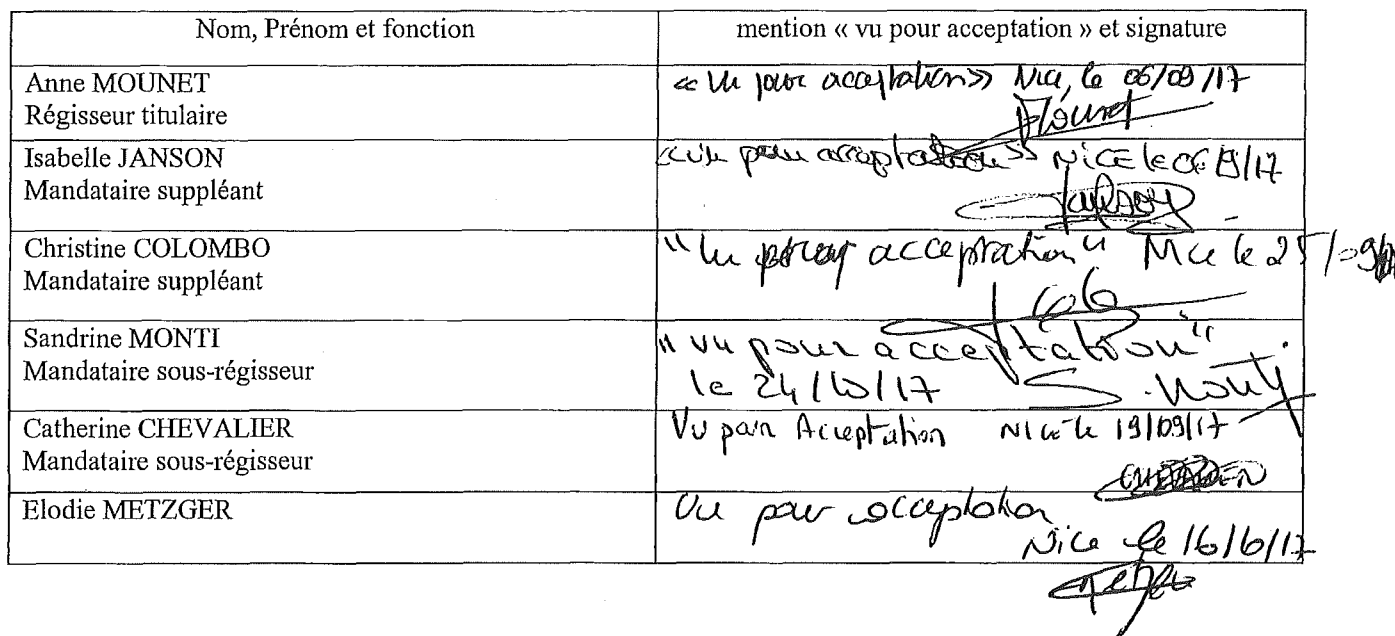 Nom, Prénom et fonction
mention « vu pour acceptation » et signature
Anne MOUNET
Régisseur titulaire
« Vu pour acceptation» Nice, le 06/09/17
Mounet
Isabelle JANSON
Mandataire suppléant
«vu pour acceptation» NICE le
Janson
Christine COLOMBO
Mandataire suppléant
"Vu pour acceptation" Nice le 25/09
Sandrine MONTI
Mandataire sous-régisseur
"vu pour acceptation"
le 24/10/17 S. Monti
Catherine CHEVALIER
Mandataire sous-régisseur
Vu pour Acceptation Nice le 19/09/17
Elodie METZGER
Vu pour acceptation
Nice le